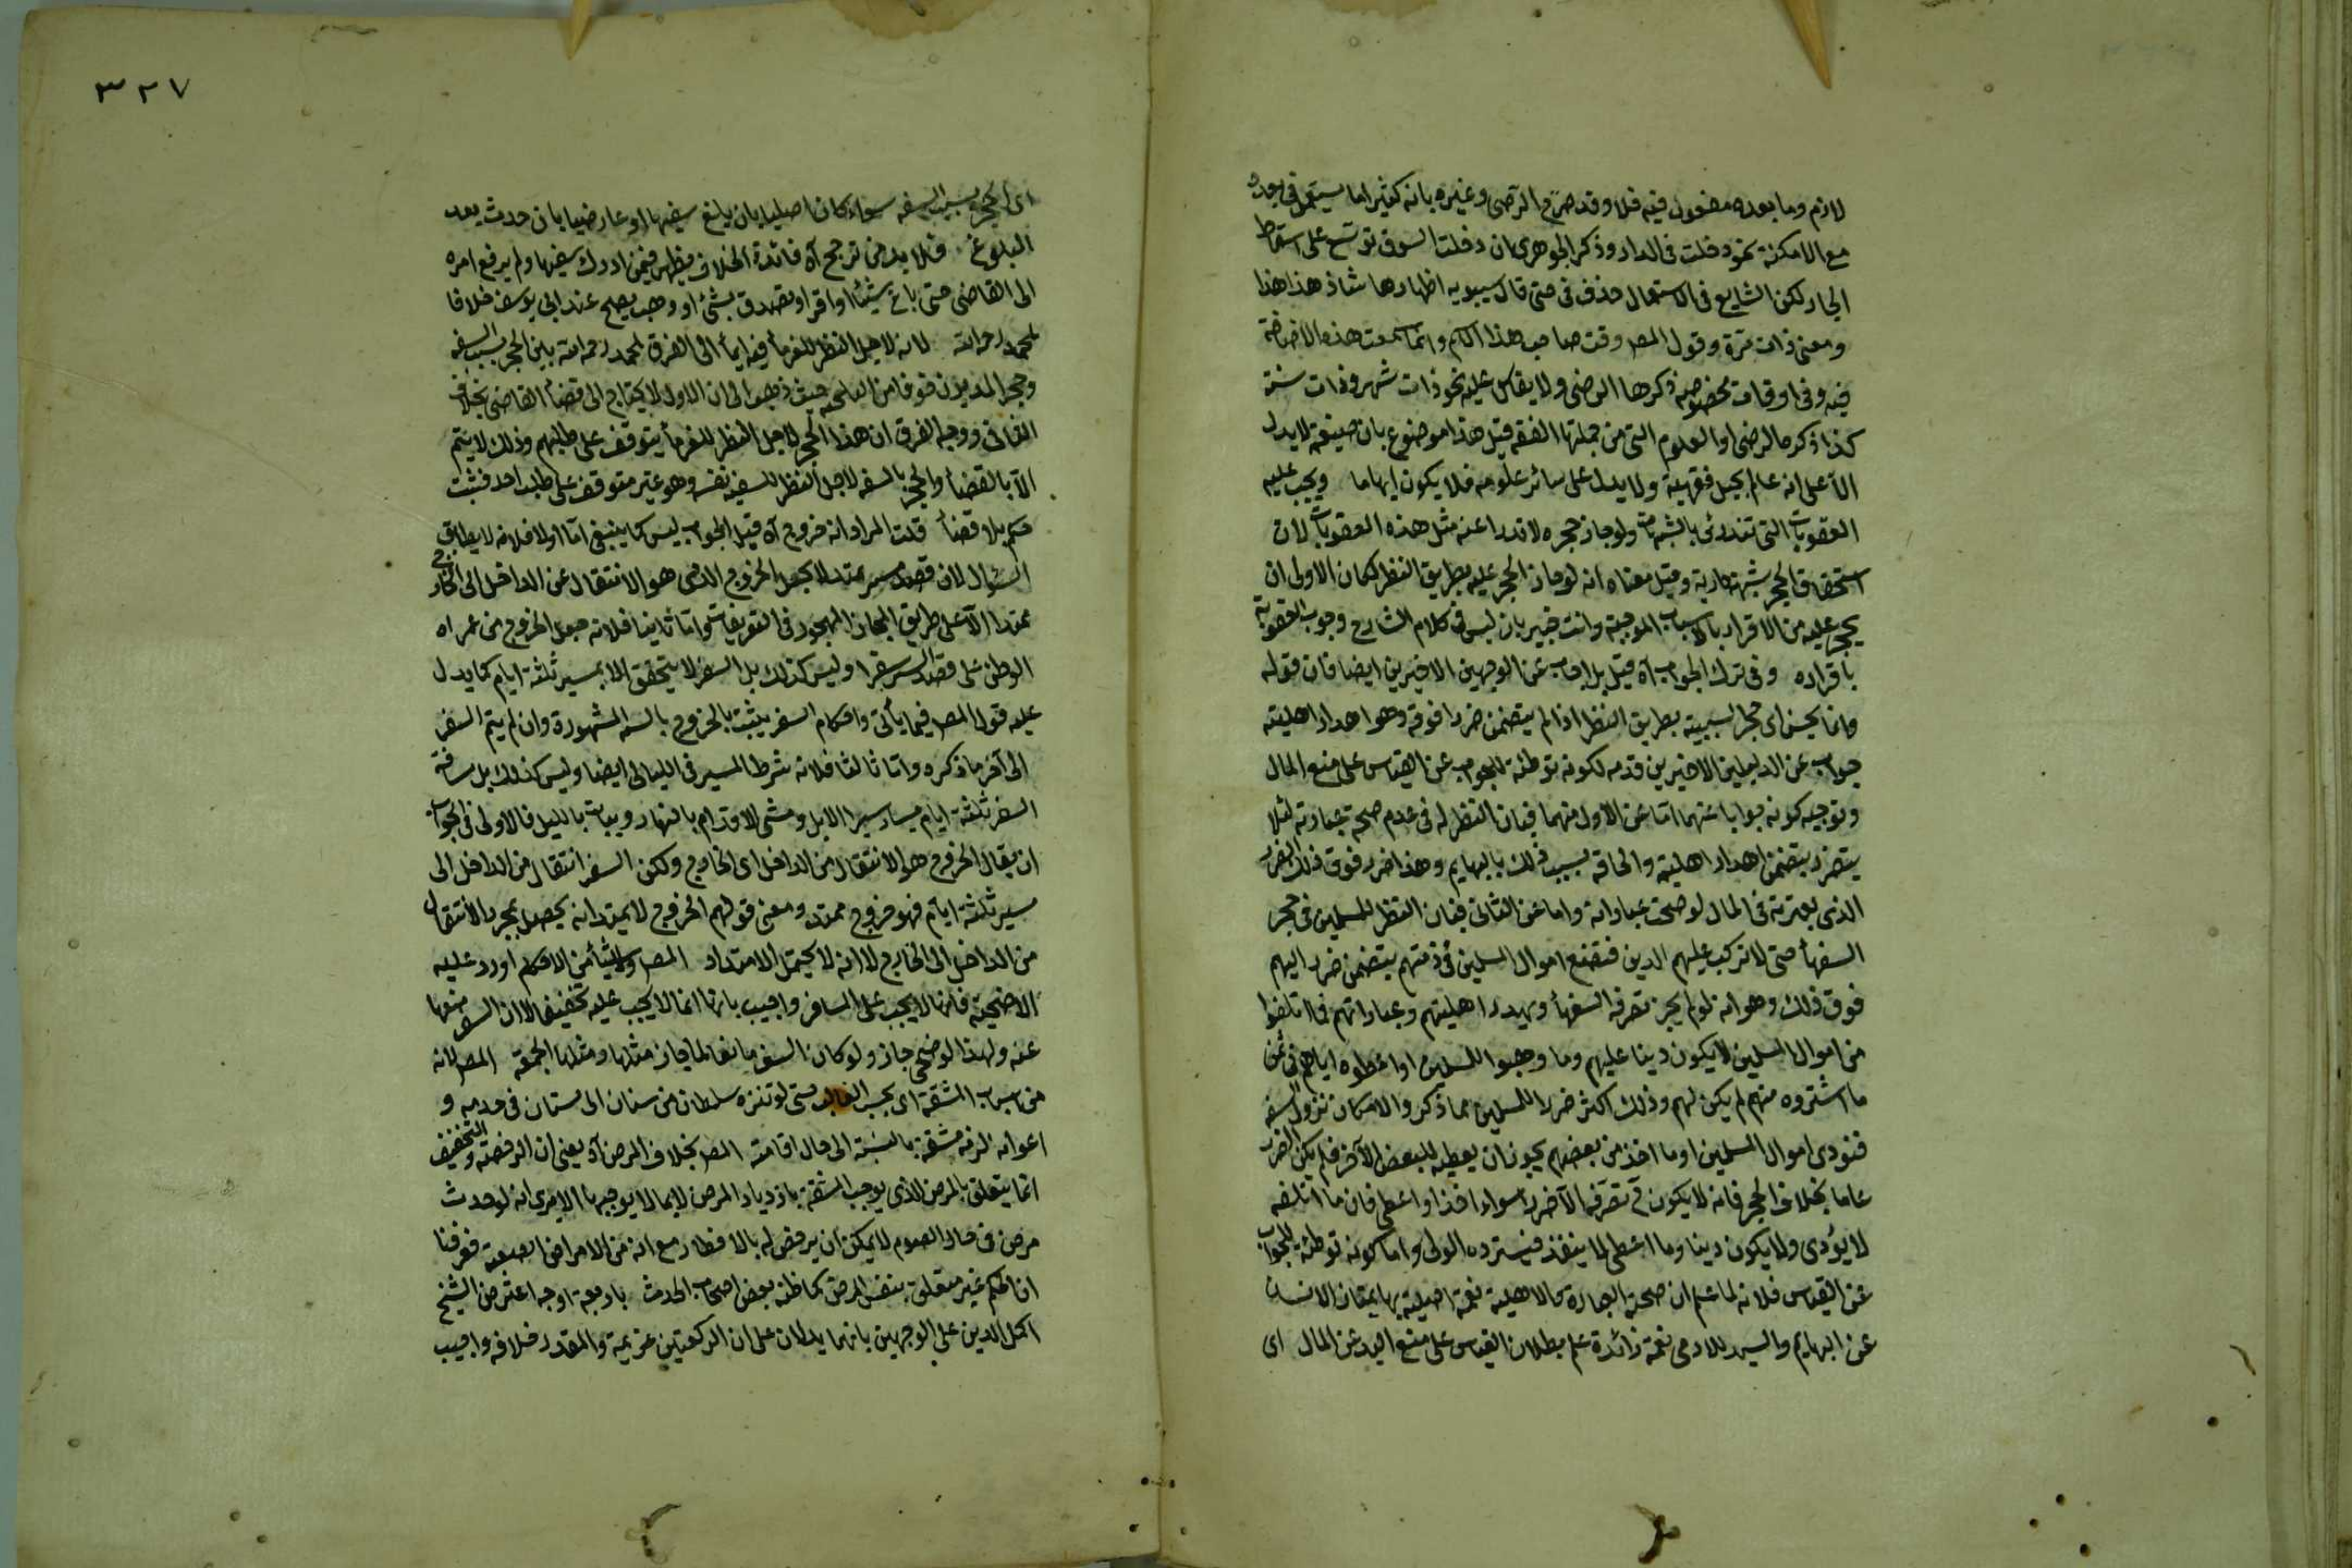 لازم وما بعده مفعول فيه فلا وقد صرّح الرضى وغيره بانه كثيرا ما يستعمل فى بعده
مع الامكنة نحو دخلت فى الدار وذكر الجوهرى ان دخلت السوق توسع على اسقاط
الجار لكن الشايع فى الاستعمال حذف فى حتى قال سيبويه اظهارها شاذ هذا هذا
ومعنى ذات مرة وقول المص وقت صاحب هذا الاسم وانما سمعت هذه الاضافة
فيه وفى اوقات مخصوصه ذكرها الرضى ولا يقاس عليه نحو ذات شهر وذات سنة
كذا ذكره الرضى او العلوم التى من جملتها الفقه قيل هذا موضوع بان صيغته لا يدل
الاّ على انه عالم بحيل فقهية ولا يدل على سائر علومه فلا يكون ايهاما ويجب عليه
العقوبات التى تندرئ بالشبهات ولو جاز حجره لاندرا عنه مثل هذه العقوبات لان
استحقاق الحجر شبهة دارية وقيل معناه انه لو جاز الحجر عليه بطريق النظر لكان الاولى ان
يحجر عليه من الاقرار بالاسباب الموجبة وانت خبير بان ليس فى كلام الشارح وجوب العقوبة
باقراره وفى ترك الجواب آه قيل بل اجاب عن الوجهين الاخيرين ايضا فان قوله
وانما يحسن اى حجر السبيبة بطريق النظر اذا لم يتضمن ضررا فوقه وهو اهدار اهليته
جواب عن الدليلين الاخيرين قدمه لكونه توطئة للجواب عن القياس على منع المال
وتوجيه كونه جوابا عنهما اما عن الاول منهما فبان النظر له فى عدم صحة عبارته لئلا
يتضرر يتضمن اهدار اهليته والحاقه بسبب ذلك بالبهايم وهذا ضرر فوق ذلك الضرر
الذى يعتريه فى المال لو صحت عباراته واما عن الثانى فبان النظر للمسلمين فى حجر
السفهأ حتى لا تركب عليهم الدين فتضيع اموال المسلمين فى ذمتهم يتضمن ضررا اليهم
فوق ذلك وهو انه لو لم يجز تصرف السفهأ ويهدر اهليتهم وعباراتهم فما اتلفوا
من اموال المسلمين لا يكون دينا عليهم وما وهبوا للمسلمين او اعطوه اياهم فى ثمن
ما اشتروه منهم لم يكن لهم وذلك اكثر ضررا للمسلمين مما ذكر والامكان نزول السفه
فتؤدى اموال المسلمين او ما اخذ من بعضهم يجوز ان يعطيه للبعض الآخر فلم يكن الضرر
عاما بخلاف الحجر فانه لا يكون فى تصرفه الا ضررا سواء اخذ او اعطى فان ما اتلفه
لا يؤدى ولا يكون دينا وما اعطى لما ينفذ فيسترده الولى واما كونه توطئة للجواب
عن القياس فلانه لما علم ان صحة العبارة كالاهلية نعمة اصلية بها يمتاز الانسان
عن البهايم واليد للادمى نعمة زائدة علم بطلان القياس على منع اليد عن المال اى
٣٢٧
اى الحجر بسبب السفه سواء كان اصليا بان يبلغ سفيها او عارضيا بان حدث بعد
البلوغ فلا بد من ترجيح آه فائدة الخلاف يظهر فيمن ادرك سفيها ولم يرفع امره
الى القاضى حتى باع شيئا او اقر او تصدق بشئ او وهب يصح عند ابى يوسف خلافا
لمحمد رحمه الله لانه لاجل النظر للغرمأ فيه ايمأ الى الفرق لمحمد رحمه الله بين الحجر بسبب السفه
وحجر المديون خوفا من التلجئه حيث ذهب الى ان الاول لا يحتاج الى قضأ القاضى بخلاف
الثانى ووجه الفرق ان هذا الحجر لاجل النظر للغرمأ يتوقف على طلبهم وذلك لا يتم
الاّ بالقضأ والحجر بالسفه لاجل النظر للسفيه نفسه وهو غير متوقف على طلب احد فثبت
حكمه بلا قضأ قلت المراد انه خروج آه قيل الجواب ليس كما ينبغى اما اولا فلانه لا يطابق
السؤال لان قصد سير ممتد لا يجعل الخروج الذى هو الانتقال عن الداخل الى الخارج
ممتدا الاّ على طريق المجاز المهجور فى التعريفات واما ثانيا فلانه جعل الخروج من عمران
الوطن على قصد السير سفرا وليس كذلك بل السفر لا يتحقق الا بمسير ثلثة ايام كما يدل
عليه قول المص فيما يأتى واحكام السفر يثبت بالخروج بالسنه المشهورة وان لم يتم السفر
الى آخر ما ذكره واما ثالثا فلانه شرط المسير فى الليالى ايضا وليس كذلك بل مسافة
السفر ثلثة ايام يسار سير الابل ومشى الاقدام بالنهار ويبات بالليل فالاولى فى الجواب
ان يقال الخروج هو الانتقال من الداخل الى الخارج ولكن السفر انتقال من الداخل الى
مسير ثلثة ايام فهو خروج ممتد ومعنى قولهم الخروج لا يمتد انه يحصل بمجرد الانتقال
من الداخل الى الخارج لا انه لا يحتمل الامتداد المص ولا شيأ من الاحكام اورد عليه
الاضحية فانها لا يجب على المسافر واجيب بانها انما لا يجب عليه تخفيفا لا ان السفر منعها
عنه ولهذا لو ضحى جاز ولو كان السفر مانعا لما جاز مثلها ومثلها الجمعة المص لانه
من اسباب المشقة اى بحسب الغالب حتى لو تنزه سلطان من بستان الى بستان فى خدمه و
اعوانه لزمه مشقة بالنسبة الى حال اقامته المص بخلاف المرض آه يعنى ان الرخصة والتخفيف
انما يتعلق بالمرض الذى يوجب المشقة بازدياد المرض لا بما لا يوجبها الا يرى انه لو حدث
مرض فى حال الصوم لا يمكن ان يرخص له بالافطار مع انه من الامراض الصعبة فعرفنا
ان الحكم غير متعلق بنفس المرض كما ظنه بعض اصحاب الحدث باربعة اوجه اعترض الشيخ
اكمل الدين على الوجهين بانهما يدلان على ان الركعتين عزيمة والمقدر خلافه واجيب